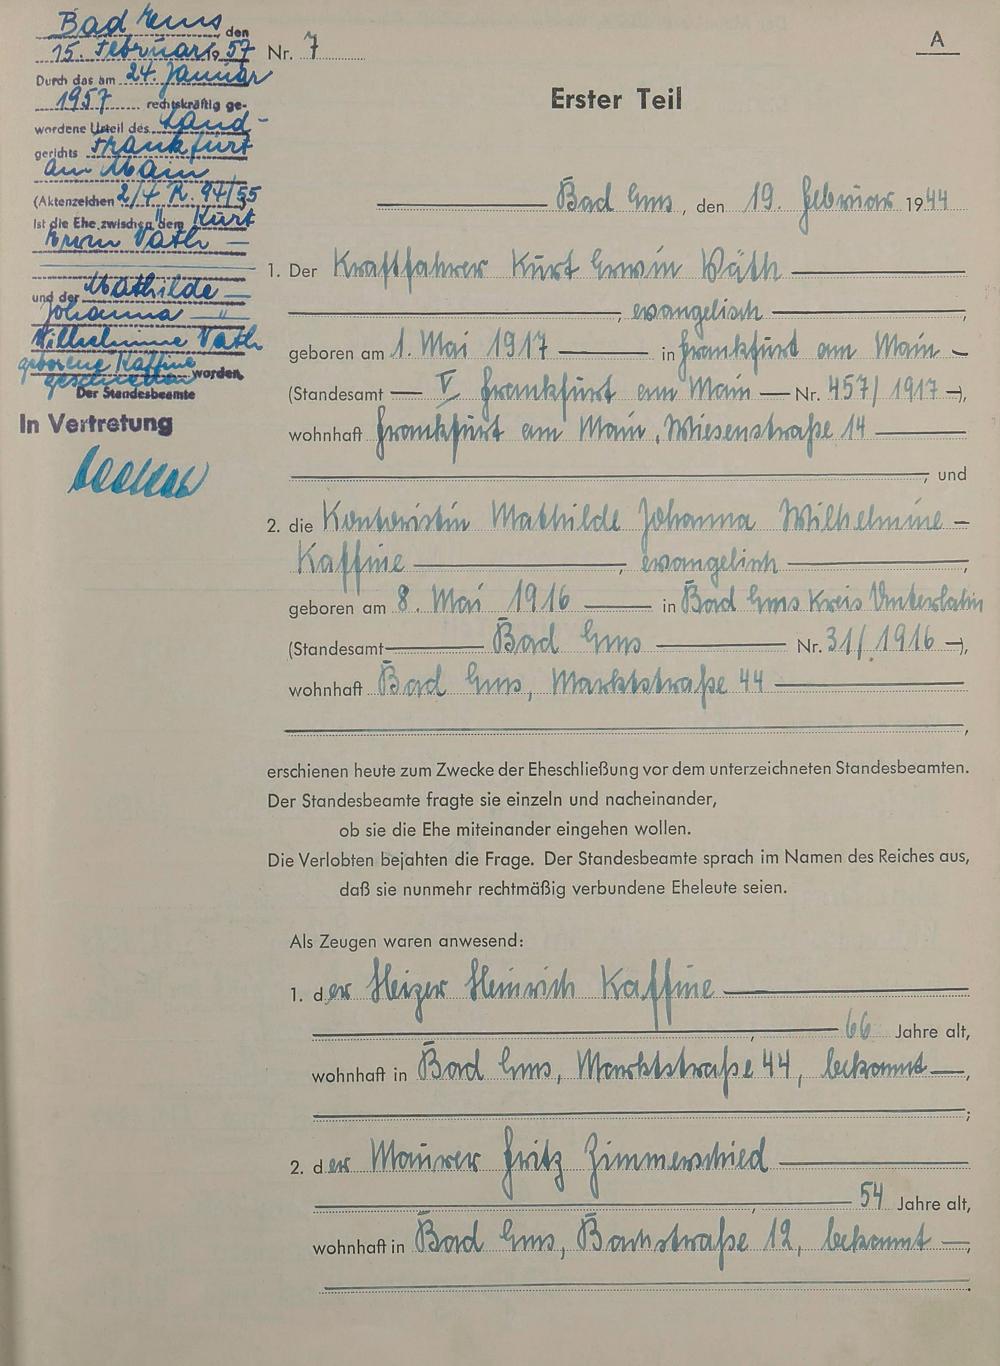 Bad Ems, den
15. Februar 1957
Durch das am 24. Januar
1957 rechtskräftig ge-
wordene Urteil des Land-
gerichts Frankfurt
am Main
(Aktenzeichen 2/4 R. 94/55
ist die Ehe zwischen dem Kurt
Erwin Väth
und der Mathilde
Johanna
Wilhelmine Väth
geborene Kaffine
geschieden worden.
Der Standesbeamte
In Vertretung
A
Nr. 7
Erster Teil
Bad Ems, den 19. Februar 1944
1. Der Kraftfahrer Kurt Erwin Väth
, evangelisch ,
geboren am 1. Mai 1917 in Frankfurt am Main
(Standesamt V Frankfurt am Main Nr. 457/1917),
wohnhaft Frankfurt am Main, Wiesenstraße 14
, und
2. die Kontoristin Mathilde Johanna Wilhelmine
Kaffine , evangelisch ,
geboren am 8. Mai 1916 in Bad Ems Kreis Unterlahn
(Standesamt Bad Ems Nr. 31/1916),
wohnhaft Bad Ems, Marktstraße 44
,
erschienen heute zum Zwecke der Eheschließung vor dem unterzeichneten Standesbeamten.
Der Standesbeamte fragte sie einzeln und nacheinander,
ob sie die Ehe miteinander eingehen wollen.
Die Verlobten bejahten die Frage. Der Standesbeamte sprach im Namen des Reiches aus,
daß sie nunmehr rechtmäßig verbundene Eheleute seien.
Als Zeugen waren anwesend:
1. der Heizer Heinrich Kaffine
, 66 Jahre alt,
wohnhaft in Bad Ems, Marktstraße 44, bekannt ,
;
2. der Maurer Fritz Zimmerschied
, 54 Jahre alt,
wohnhaft in Bad Ems, Bachstraße 12, bekannt ,
.